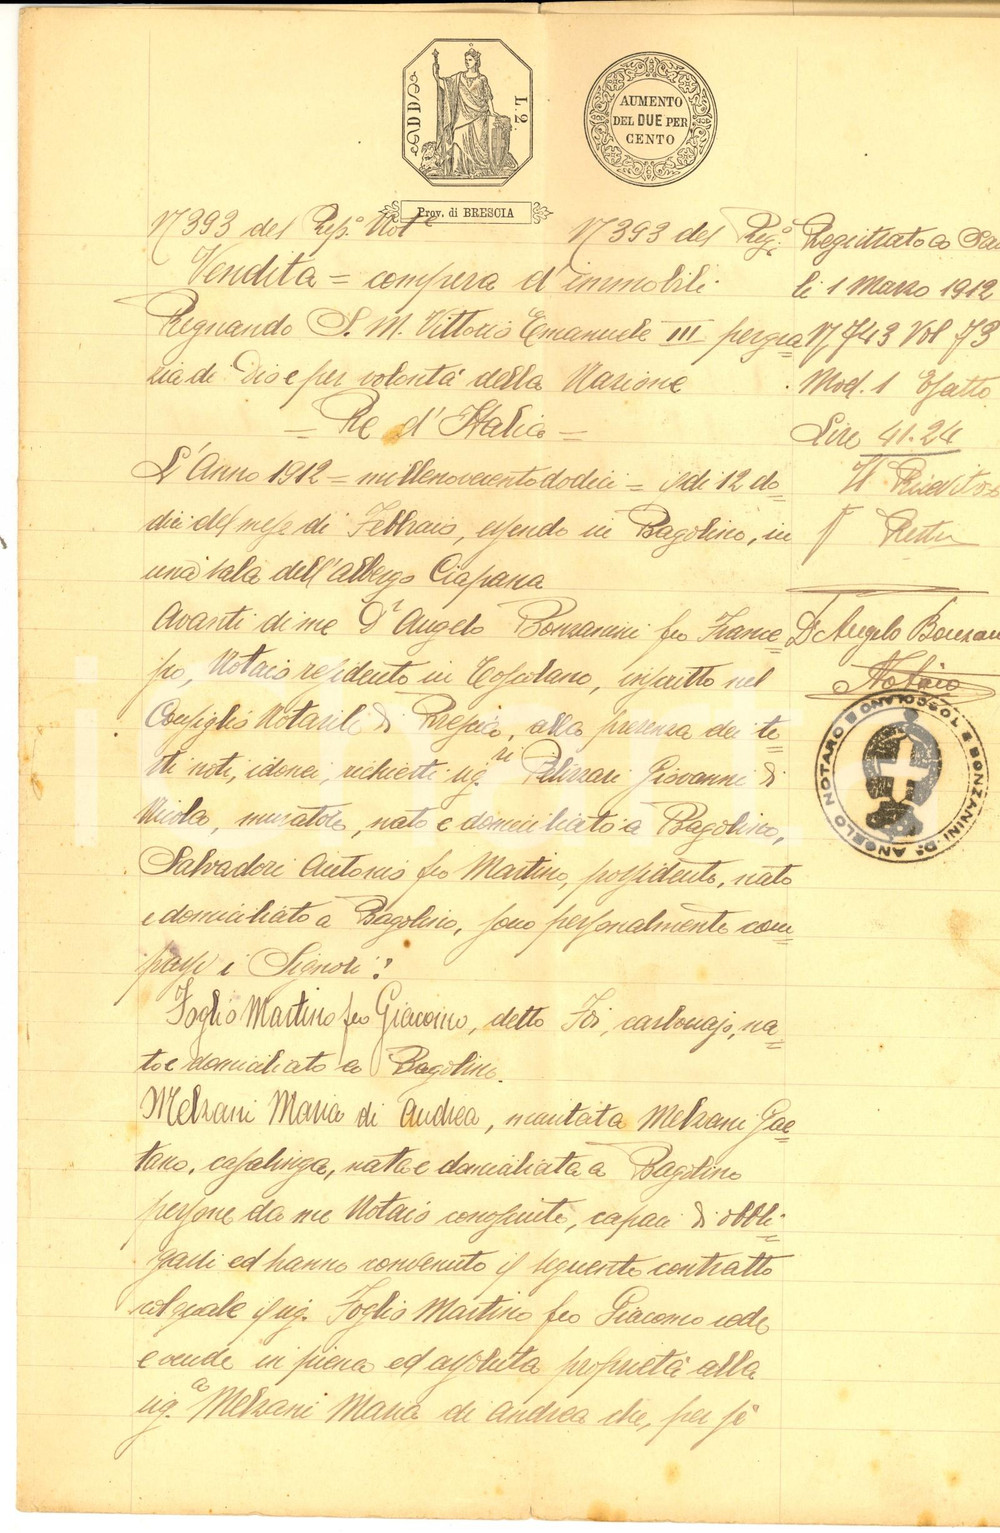 ADDS
L. 2.
AUMENTO
DEL DUE PER
CENTO
Prov. di BRESCIA
N 393 del Rep.º Not.e N 393 del Reg.º
Vendita = compera d'immobili.
Regnando S. M. Vittorio Emanuele III per gra=
zia di Dio e per volontà della Nazione
= Re d'Italia =
L'Anno 1912 = millenovecentododici = addì 12 do=
dici del mese di Febbraio, essendo in Bagolino, in
una sala dell'albergo Ciapana
Avanti di me Dr Angelo Bonzanini fu France=
sco, Notaio residente in Toscolano, inscritto nel
Consiglio Notarile di Brescia, alla presenza dei te=
sti noti, idonei, richiesti sig.ri Pelizzari Giovanni di
Nicola, muratore, nato e domiciliato a Bagolino,
Salvadori Antonio fu Martino, possidente, nato
e domiciliato a Bagolino, sono personalmente com=
parsi i Signori:
Foglio Martino fu Giacomo, detto Foi, carbonajo, na=
to e domiciliato a Bagolino.
Melzani Maria di Andrea, maritata Melzani Gae=
tano, casalinga, nata e domiciliata a Bagolino
persone da me Notaio conosciute, capaci di obbli=
garsi ed hanno convenuto il seguente contratto
col quale il sig. Foglio Martino fu Giacomo cede
e vende in piena ed assoluta proprietà alla
sig.a Melzani Maria di Andrea che, per sè
Registrato a Sal
li 1 Marzo 1912
N 743 Vol 73
Mod. 1 Esatto
Lire 41.24
Il Ricevitore
f
Dr Angelo Bonzani
Notaio
BONZANINI Dr ANGELO NOTARO A TOSCOLANO